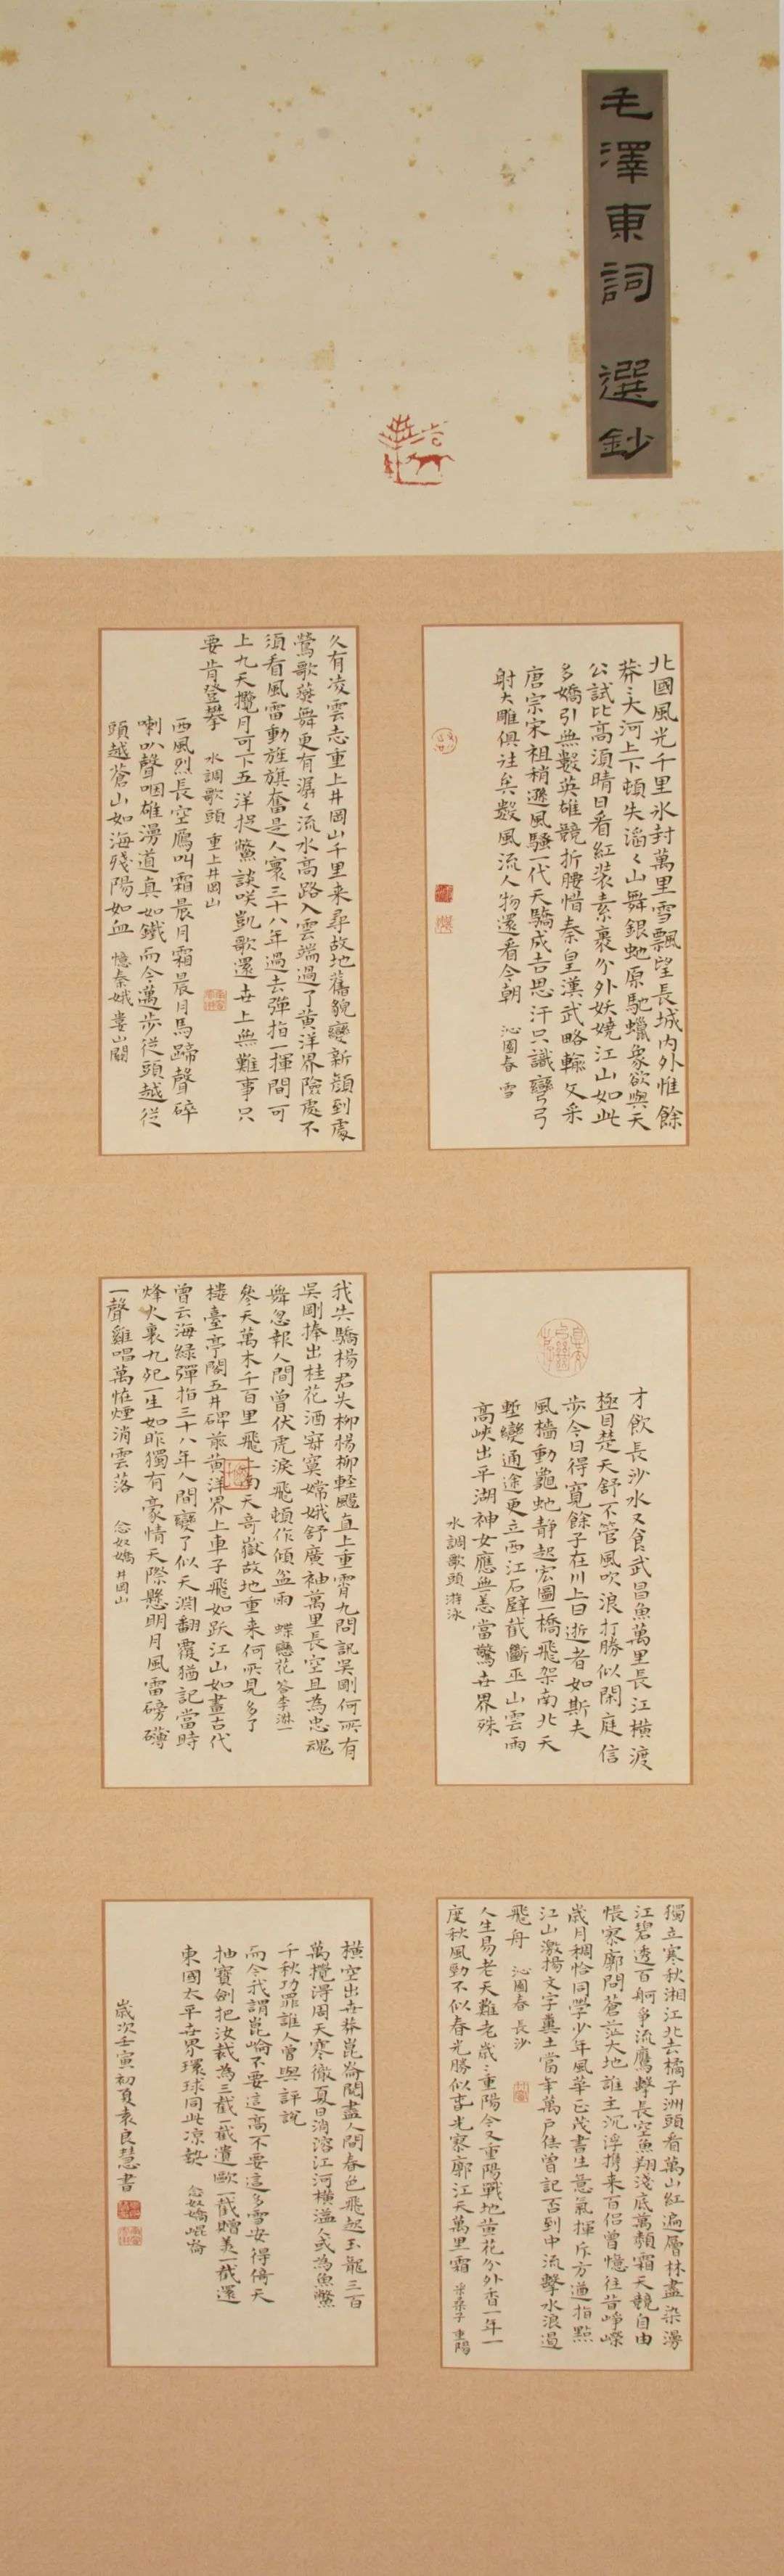 毛澤東詞 選鈔
北國風光千里冰封萬里雪飄望長城內外惟餘
莽〻大河上下頓失滔〻山舞銀蛇原馳蠟象欲與天
公試比高須晴日看紅裝素裹分外妖嬈江山如此
多嬌引無數英雄競折腰惜秦皇漢武略輸文采
唐宗宋祖稍遜風騷一代天驕成吉思汗只識彎弓
射大雕俱往矣數風流人物還看今朝 沁園春 雪
久有凌雲志重上井岡山千里来尋故地舊貌變新顏到處
鶯歌燕舞更有潺〻流水高路入雲端過了黃洋界險處不
須看風雷動旌旗奮是人寰三十八年過去彈指一揮間可
上九天攬月可下五洋捉鱉談咲凱歌還世上無難事只
要肯登攀 水調歌頭 重上井岡山
西風烈長空鴈叫霜晨月霜晨月馬蹄聲碎
喇叭聲咽雄漫道真如鐵而今邁步從頭越從
頭越蒼山如海殘陽如血 憶秦娥 婁山關
才飲長沙水又食武昌魚萬里長江橫渡
極目楚天舒不管風吹浪打勝似閑庭信
步今日得寬餘子在川上曰逝者如斯夫
風檣動龜蛇靜起宏圖一橋飛架南北天
塹變通途更立西江石壁截斷巫山雲雨
高峽出平湖神女應無恙當驚世界殊
水調歌頭 游泳
我失驕楊君失柳楊柳輕颺直上重霄九問訊吳剛何所有
吳剛捧出桂花酒寂寞嫦娥舒廣袖萬里長空且為忠魂
舞忽報人間曾伏虎淚飛頓作傾盆雨 蝶戀花 答李淑一
參天萬木千百里飛上南天奇嶽故地重来何所見多了
樓臺亭閣五井碑前黃洋界上車子飛如跃江山如畫古代
曾云海綠彈指三十八年人間變了似天淵翻覆猶記當時
烽火裏九死一生如昨獨有豪情天際懸明月風雷磅礴
一聲雞唱萬怪煙消雲落 念奴嬌 井岡山
獨立寒秋湘江北去橘子洲頭看萬山紅遍層林盡染漫
江碧透百舸爭流鷹擊長空魚翔淺底萬類霜天競自由
悵寥廓問蒼茫大地誰主沉浮携来百侶曾憶往昔崢嶸
歲月稠恰同學少年風華正茂書生意氣揮斥方遒指點
江山激揚文字糞土當年萬戶侯曾記否到中流擊水浪遏
飛舟 沁園春 長沙
人生易老天難老歲〻重陽今又重陽戰地黃花分外香一年一
度秋風勁不似春光勝似春光寥廓江天萬里霜 采桑子 重陽
橫空出世莽崑崙閱盡人間春色飛起玉龍三百
萬攪得周天寒徹夏日消溶江河橫溢人或為魚鱉
千秋功罪誰人曾與評說
而今我謂崑崙不要這高不要這多雪安得倚天
抽寶劍把汝裁為三截一截遺歐一截贈美一截還
東國太平世界環球同此涼熱 念奴嬌 崑崙
歲次壬寅初夏袁良慧書